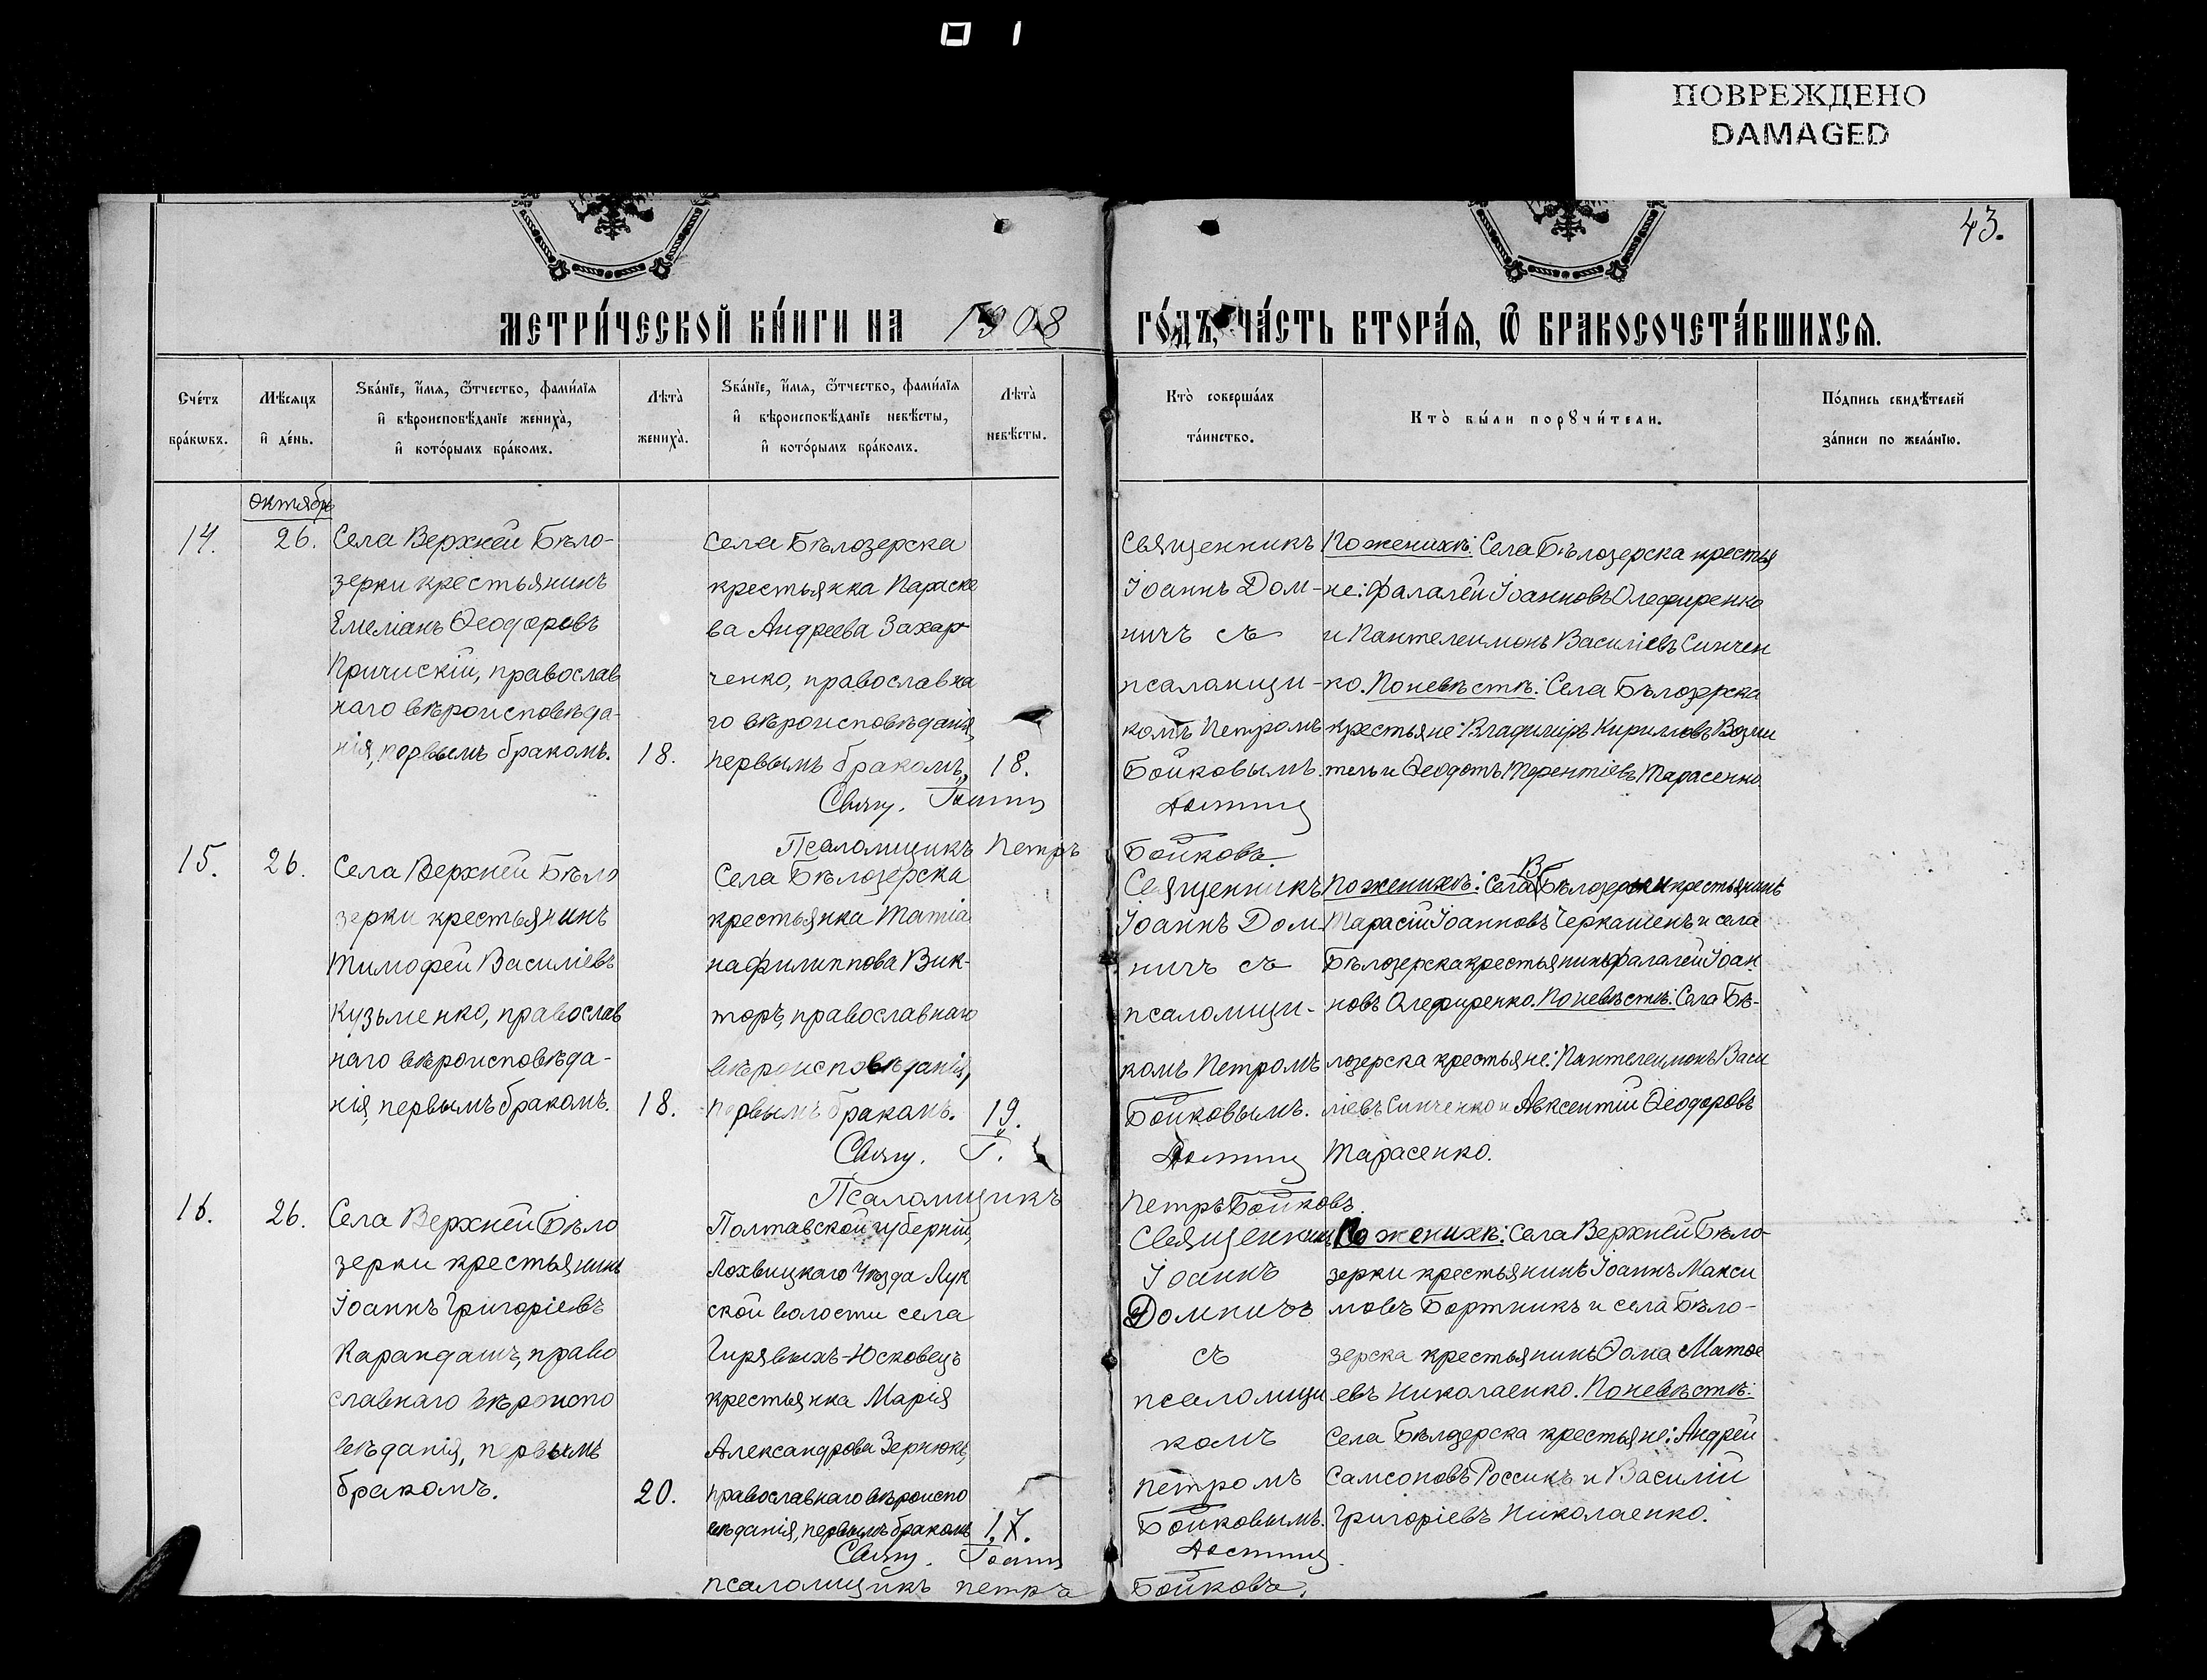 ПОВРЕЖДЕНО
DAMAGED
43.
МЕТРИ́ЧЕСКОЙ КНИ́ГИ НА 1908 ГО́ДЪ, ЧА́СТЬ ВТОРА́Я, Ѿ БРАКОСОЧЕТА́ВШИХСЯ.
Сче́тъ
бра́кѡвъ.
Мѣ́сяцъ
и҆ де́нь.
Ѕва́нїе, и҆́мя, ѻ҆́тчество, фами́лїя
и҆ вѣроисповѣ́данїе жениха̀,
и҆ кото́рымъ бра́комъ.
Лѣта̀
жениха̀.
Ѕва́нїе, и҆́мя, ѻ҆́тчество, фами́лїя
и҆ вѣроисповѣ́данїе невѣ́сты,
и҆ кото́рымъ бра́комъ.
Лѣта̀
невѣ́сты.
Кто̀ соверша́лъ
та́инство.
Кто̀ бы́ли порꙋчи́тели.
По́дпись свидѣ́телей
за́писи по жела́нїю.
Октябрь
14.
26.
Села Верхней Бѣло-
зерки крестьянинъ
Емеліанъ Ѳеодоровъ
Причискій, православ
наго вѣроисповѣда-
нія, первымъ бракомъ.
18.
Села Бѣлозерска
крестьянка Параске
ва Андреева Захар
ченко, православна
го вѣроисповѣданія,
первымъ бракомъ.
18.
Свящ. Іоаннъ
Псаломщикъ Петръ
Священникъ
Іоаннъ Дом-
ничъ съ
псаломщи-
комъ Петромъ
Бойковымъ.
Домничъ
Бойковъ.
По женихѣ: Села Бѣлозерска крестья
не: Фалалей Іоанновъ Олефиренко
и Пантелеимонъ Василіевъ Синчен
ко. По невѣстѣ: Села Бѣлозерска
крестьяне: Владиміръ Кирилловъ
тель и Ѳеодотъ Терентіевъ Тарасенко.
15.
26.
Села Верхней Бѣло
зерки крестьянинъ
Тимофей Василіевъ
Кузьменко, православ
наго вѣроисповѣда-
нія, первымъ бракомъ.
18.
Села Бѣлозерска
крестьянка Татіа
на Филиппова Вик-
торъ, православнаго
вѣроисповѣданія,
первымъ бракомъ.
19.
Свящ. І.
Псаломщикъ
Священникъ
Іоаннъ Дом
ничъ съ
псаломщи-
комъ Петромъ
Бойковымъ.
Домничъ
Петръ Бойковъ.
По женихѣ: Села В Бѣлозерки крестьянинъ
Тарасій Іоанновъ Черкашенъ и села
Бѣлозерска крестьянинъ Фалалей Іоан
новъ Олефиренко. По невѣстѣ: Села Бѣ-
лозерска крестьяне: Пантелеимонъ Васи
ліевъ Синченко и Авксентій Ѳеодоровъ
Тарасенко.
16.
26.
Села Верхней Бѣло
зерки крестьянинъ
Іоаннъ Григоріевъ
Карандашъ, право
славнаго вѣроиспо
вѣданія, первымъ
бракомъ.
20.
Полтавской губерніи,
Лохвицкаго Уѣзда Лук
ской волости села
Гирявыхъ-Юсковецъ
крестьянка Марія
Александрова Зернюкъ,
православнаго вѣроиспо
вѣданія, первымъ бракомъ
17.
Свящ. Іоаннъ
псаломщикъ Петръ
Священникъ
Іоаннъ
Домничъ
съ
псаломщи
комъ
Петромъ
Бойковымъ.
Домничъ
Бойковъ.
По женихѣ: Села Верхней Бѣло-
зерки крестьянинъ Іоаннъ Макси
мовъ Бортникъ и села Бѣло-
зерска крестьянинъ Ѳома Матѳе
евъ Николаенко. По невѣстѣ:
Села Бѣлозерска крестьяне: Андрей
Самсоновъ Россикъ и Василій
Григоріевъ Николаенко.